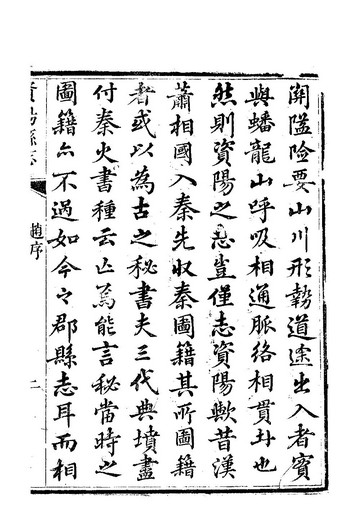 關隘險要山川形勢道途出入者實
與蟠龍山呼吸相通脈絡相貫古也
然則資陽之志豈僅志資陽歟昔漢
蕭相國入秦先收秦圖籍其所圖籍
者或以為古之秘書夫三代典墳盡
付秦火書種云亡焉能言秘當時之
圖籍亦不過如今之郡縣志耳而相
資陽縣志
趙序
二